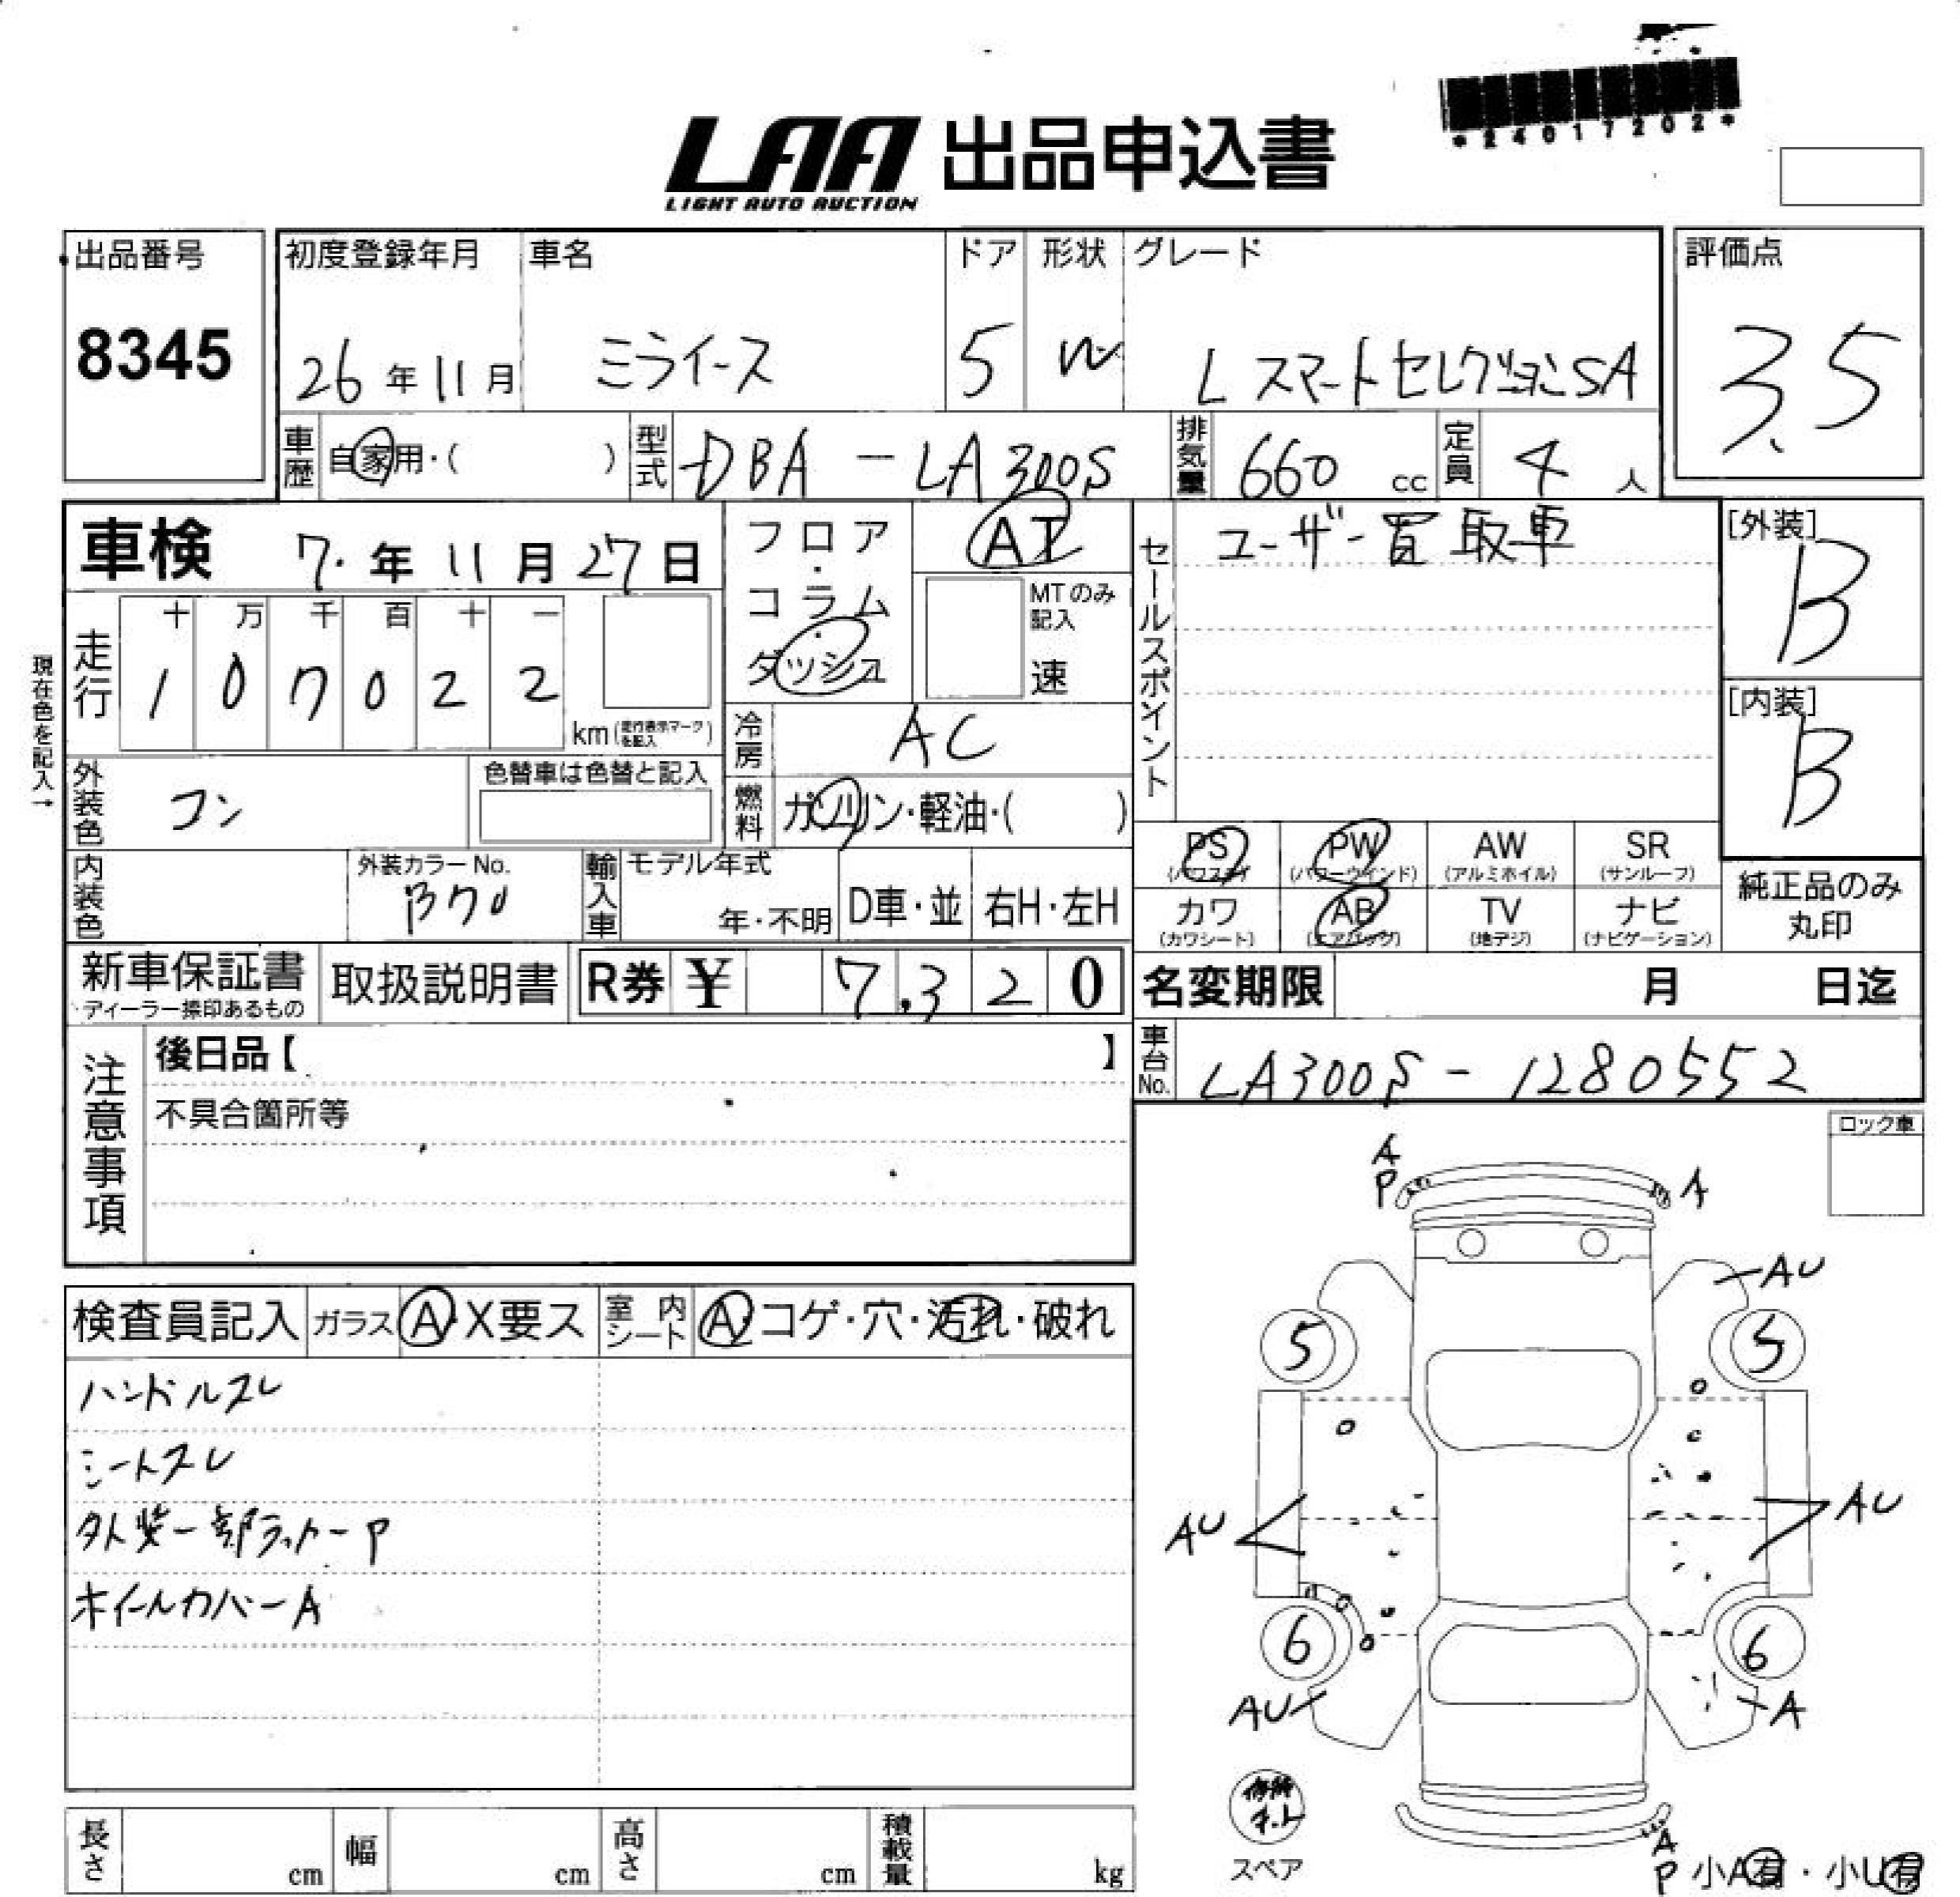 *24017202*
LAA 出品申込書
LIGHT AUTO AUCTION
出品番号
8345
初度登録年月
26年11月
車名
ミライース
ドア
5
形状
W
グレード
L スマートセレクションSA
評価点
3.5
車歴
自家用・( )
型式
DBA-LA300S
排気量
660 cc
定員
4 人
車検 7.年11月27日
フロア・コラム・ダッシュ
AT
MTのみ記入
速
セールスポイント
ユーザー買取車
[外装]
B
[内装]
B
現在色を記入→
走行
十 万 千 百 十 一
1 0 7 0 2 2
km(走行表示マークを記入)
冷房
AC
外装色
コン
色替車は色替と記入
燃料
ガソリン・軽油・( )
内装色
外装カラーNo.
B70
輸入車
モデル年式
年・不明
D車・並
右H・左H
PS
(パワステ)
PW
(パワーウインド)
AW
(アルミホイル)
SR
(サンルーフ)
カワ
(カワシート)
AB
(エアバッグ)
TV
(地デジ)
ナビ
(ナビゲーション)
純正品のみ
丸印
新車保証書
ディーラー捺印あるもの
取扱説明書
R券 ¥ 7,320
名変期限 月 日迄
注意事項
後日品【 】
不具合箇所等
車台No.
LA300S-1280552
ロック車
A
P
A
AU
5
5
AU
AU
6
6
AU
A
スペア
A
P
小A有・小U有
検査員記入
ガラス
A・X要ス
室内シート
A・コゲ・穴・汚れ・破れ
ハンドルスレ
シートスレ
外装一部ラッカーP
ホイールカバーA
長さ cm
幅 cm
高さ cm
積載量 kg